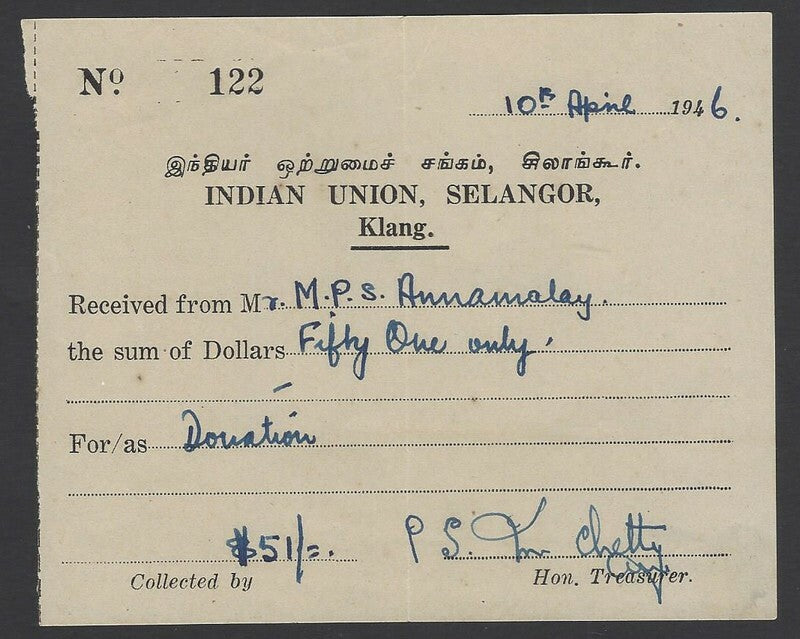 Nº 122
10th April 1946.
இந்தியர் ஒற்றுமைச் சங்கம், சிலாங்கூர்.
INDIAN UNION, SELANGOR,
Klang.
Received from Mr. M.P.S. Annamalay.
the sum of Dollars Fifty One only.
For/as Donation
$51/=. P S. Chetty
Collected by Hon. Treasurer.